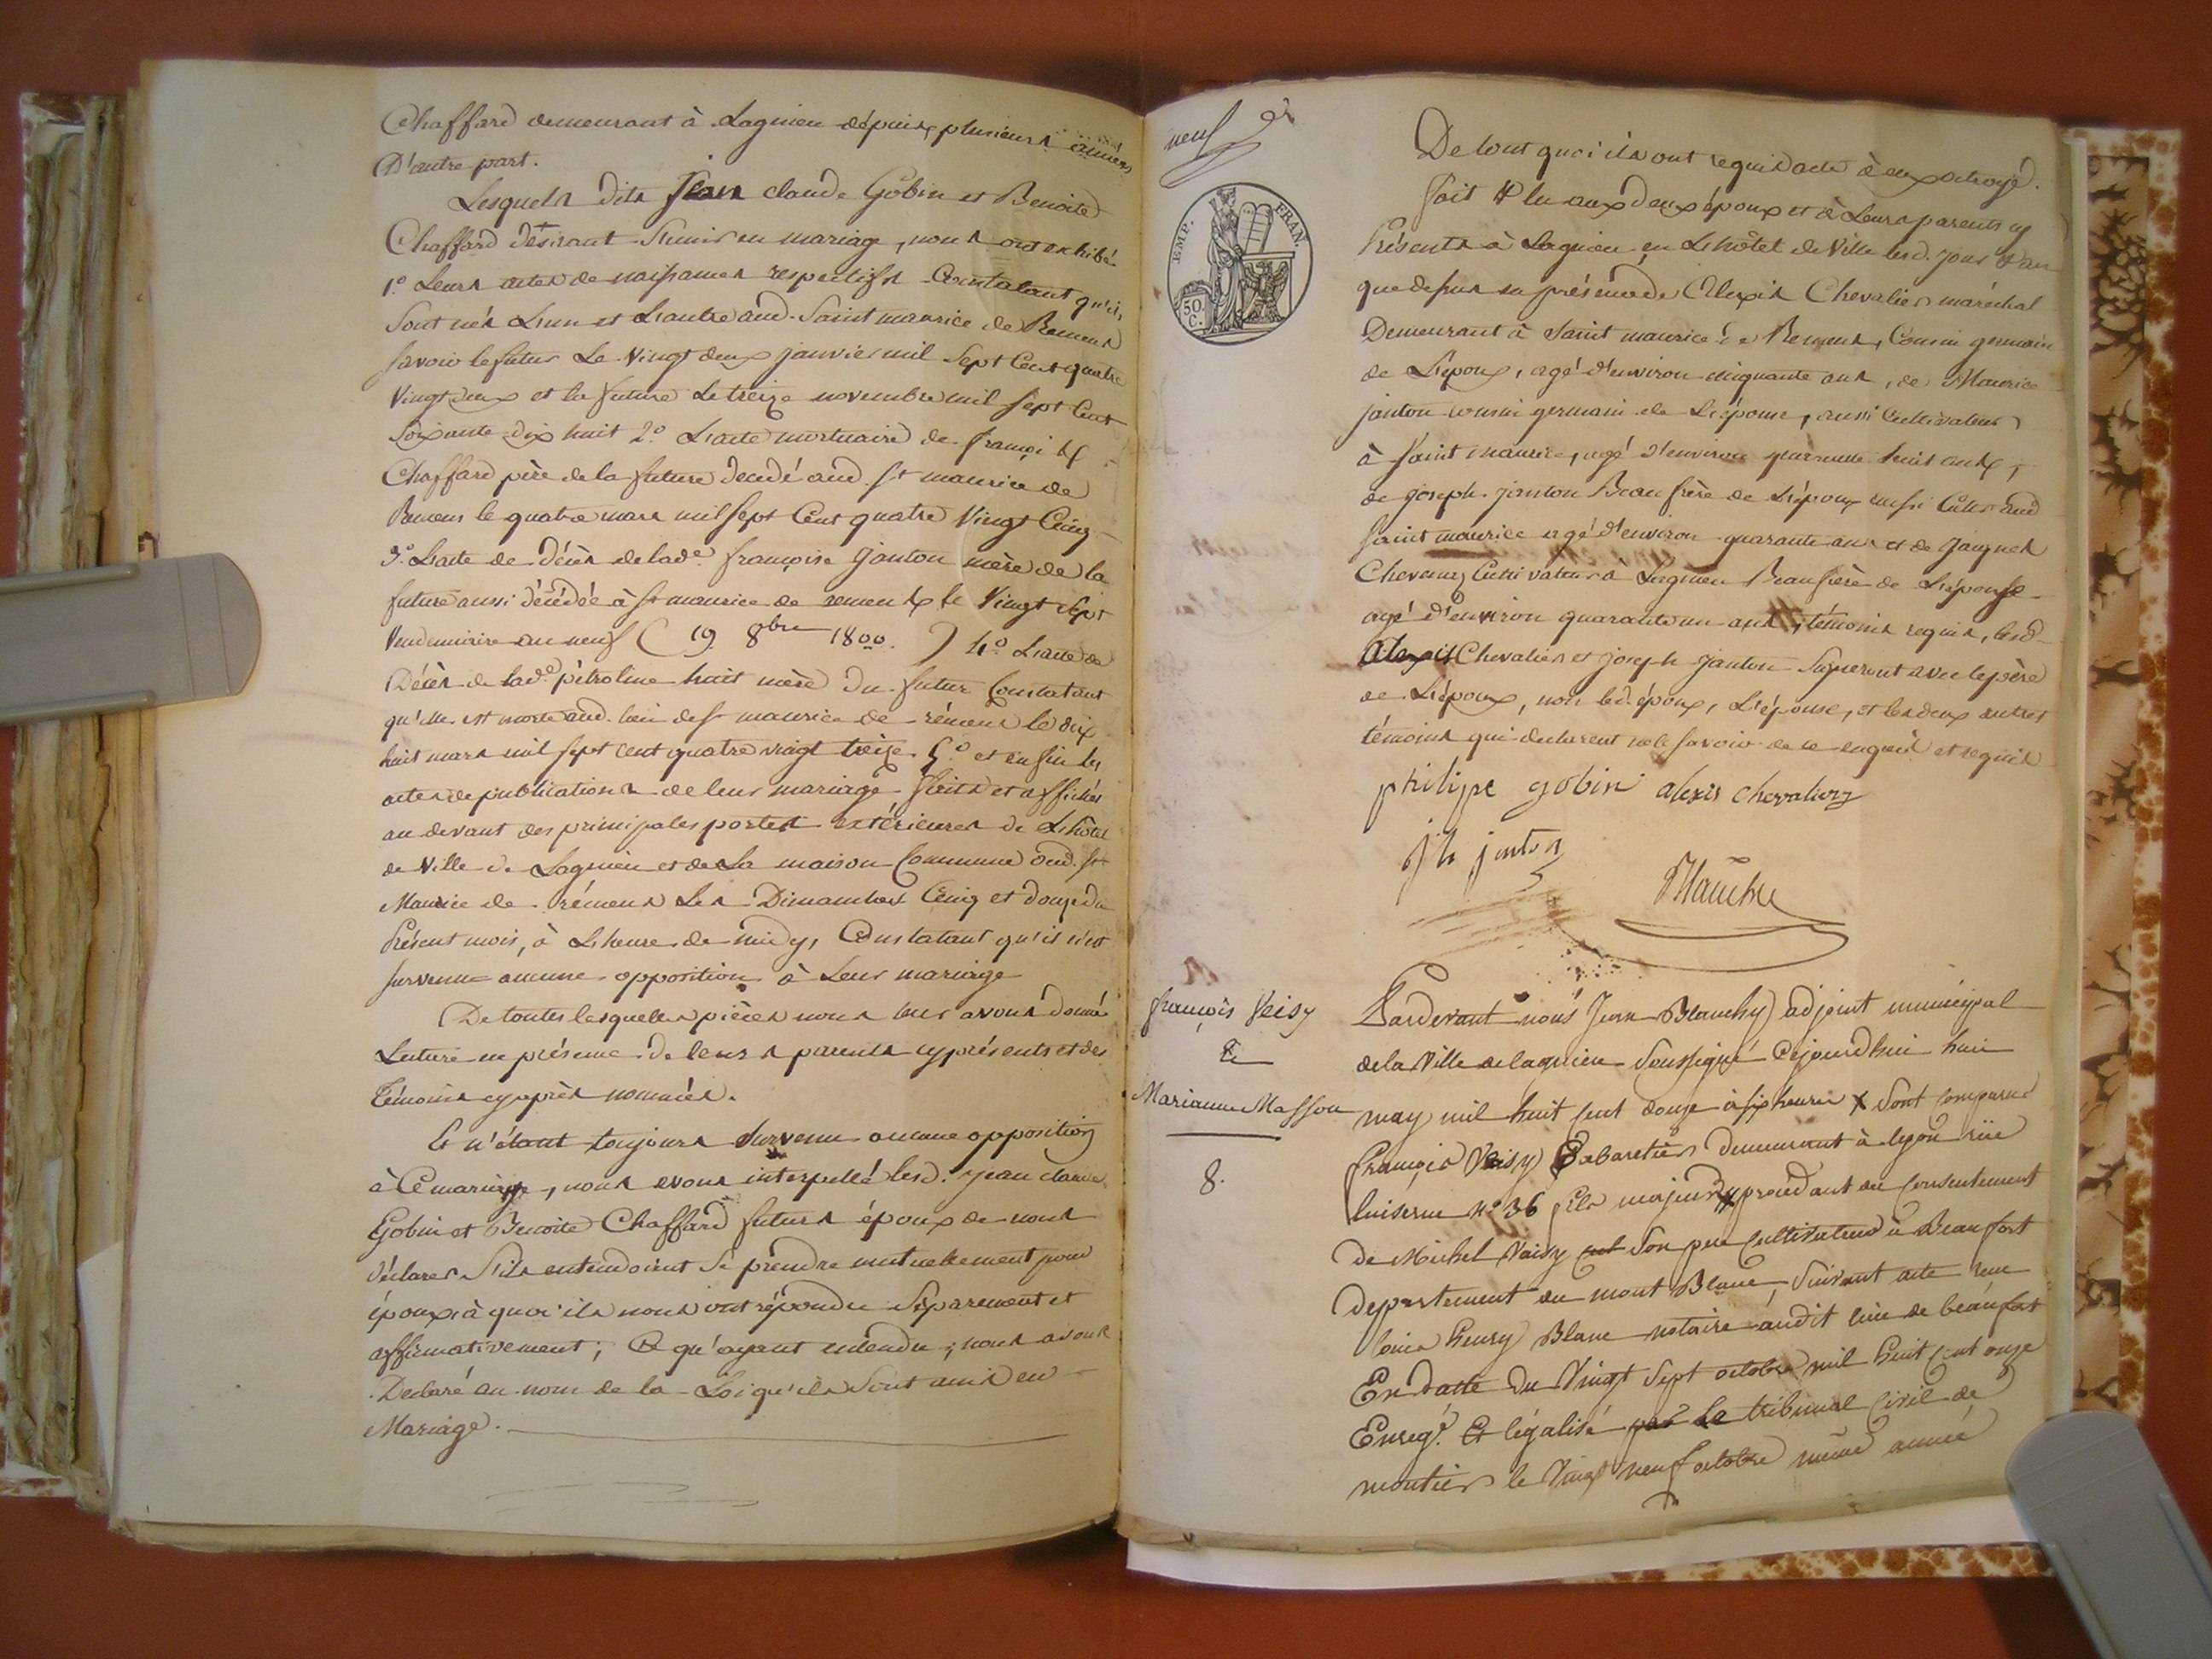 Chaffard demeurant à Lagnieu dépuis plusieurs années
D'autre part.
Lesquels dits Jean claude Gobin et Benoite
Chaffard désirant s'unir en mariage, nous ont exhibé
1.º Leurs actes de naissances respectifs Constatant qu'ils
sont nés L'un et L'autre aud. Saint maurice de Remens
savoir le futur Le vingt deux janvier mil Sept Cent quatre
Vingt deux et la future Le treize novembre mil sept Cent
Soixante dix huit 2.º L'acte mortuaire de françois
Chaffard père de la future decedé aud. St maurice de
Remens le quatre mars mil sept Cent quatre Vingt Cinq
3.º L'acte de décès de lade. françoise Janton mère de la
future aussi décédée à St maurice de remens le Vingt sept
Vendemiaire an neuf (19. 8bre 1800.) 4.º L'acte de
Décès de lade. pétroline huit mère du futur Constatant
qu'elle est morte aud. lieu de St maurice de rémens le dix
huit mars mil sept cent quatre vingt treize. 5.º et enfin les
actes de publications de leur mariage faits et affichés
au devant des principales portes extérieures de L'hôtel
de Ville de Lagnieu et de La maison Commune dud. St
Maurice de rémens Les Dimanches Cinq et douze du
Présent mois, à L'heure de midy, Constatant qu'il n'est
survenu aucune opposition à Leur mariage
De toutes lesquelles pièces nous leur avons donné
Lecture en présence de leurs parents cy présents et des
Témoins cy après nommés.
Et n'étant toujours survenu aucune opposition
à Ce mariage, nous avons interpellé lesd. Jean claude
Gobin et Benoite Chaffard futurs époux de nous
déclarer s'ils entendoient Se prendre mutuellement pour
époux à quoi ils nous ont répondu Séparement et
affirmativement; Ce qu'ayant entendu, nous avons
Declaré au nom de la Loi qu'ils Sont unis en
Mariage.
neuf
EMP. FRAN.
50 C.
De tout quoi ils ont requis acte à eux octroyé.
Fait & lu aux deux époux et à Leurs parents cy
Présents à Lagnieu en L'hôtel de Ville lesd. jour & an
que dessus en présence de Alexis Chevalier maréchal
Demeurant à Saint maurice de Remens, Cousin germain
de L'époux, agé d'environ cinquante ans, de Maurice
janton cousin germain de L'épouse, aussi Cultivateur
à Saint maurice, agé d'environ quarante huit ans,
de joseph janton Beau frère de L'époux aussi Cultr aud
Saint maurice agé d'environ quarante ans et de Jacques
Cultivateur à Lagnieu Beaufrère de L'épouse
agé d'environ quarante un ans, témoins requis, lesd.
Alexis Chevalier et joseph janton Signeront avec le père
de L'époux, non led. époux, L'épouse, et les deux autres
témoins qui declarent ne le savoir de ce enquis et requis
philipe gobin alexis chevalier
jh janton
Blanchy
françois Veisy
&
Marianne Masson
8.
Pardevant nous Jean Blanchy adjoint municipal
de la Ville de lagnieu Soussigné Cejourdhui huit
may mil huit cent douze à six heures X Sont comparus
François Veisy Cabaretier demeurant à lyon rüe
luiserne nº 36 fils majeur procédant du consentement
de Michel Vaisy Son pere Cultivateur à Beaufort
departement du mont Blanc, Suivant acte reçu
louis henry Blanc notaire audit lieu de beaufort
En datte du Vingt Sept octobre mil huit cent onze
Enregé. Et légalisé par le tribunal Civil de
moutiers le Vingt neuf octobre même année